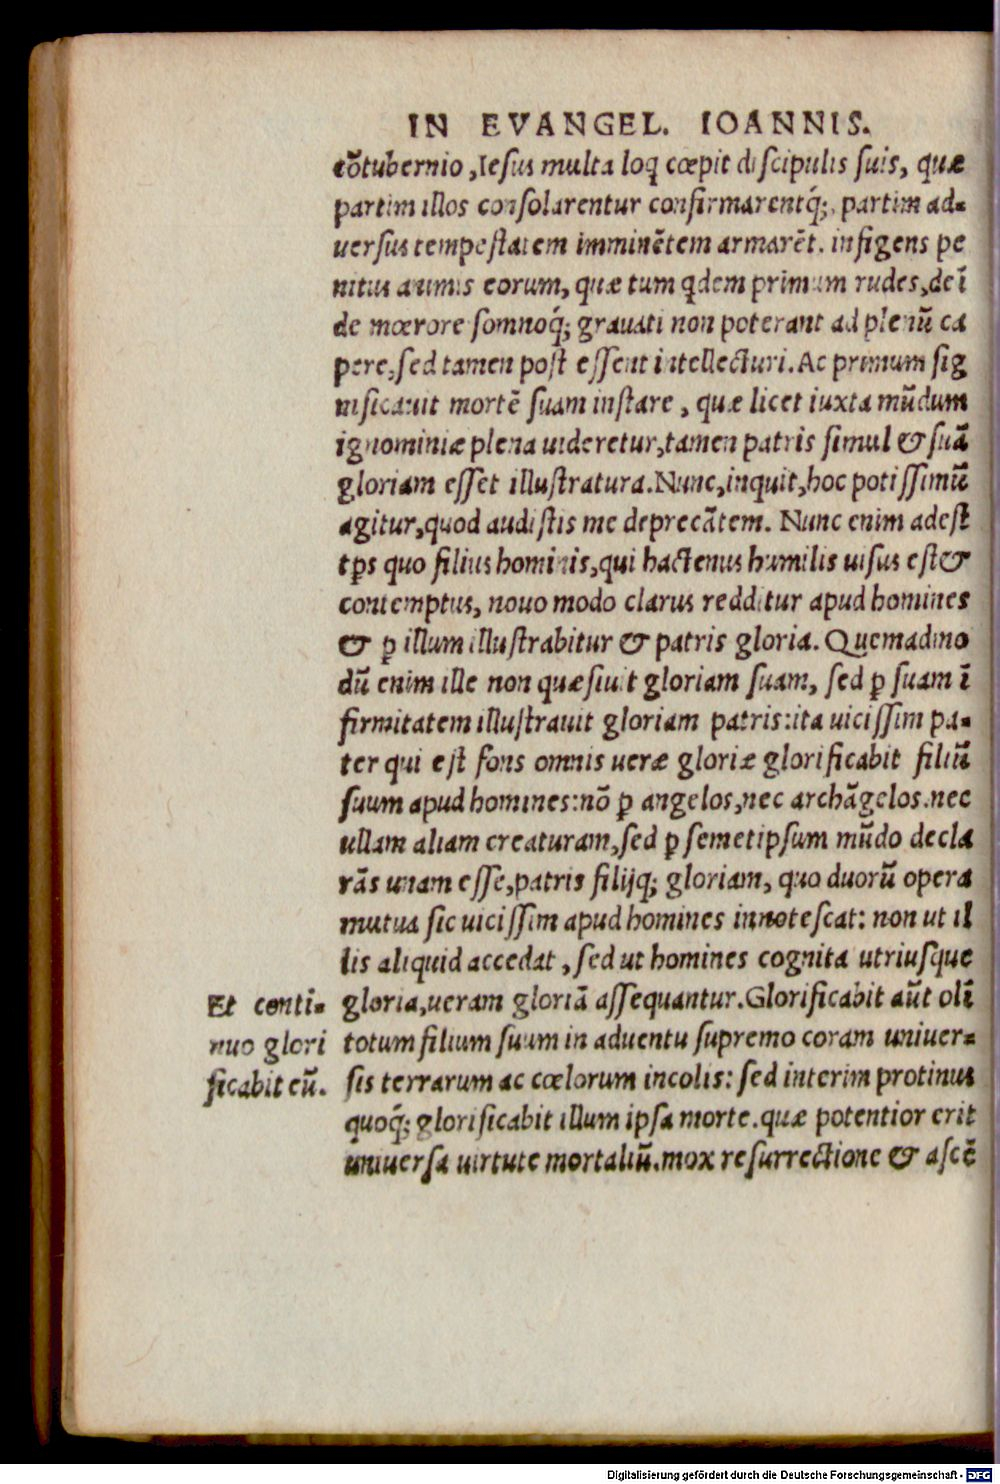 IN EVANGEL. IOANNIS.
cōtubernio, Iesus multa loq̨ cœpit discipulis suis, quæ
partim illos consolarentur confirmarentq́;, partim ad-
uersus tempestatem imminētem armarēt. infigens pe
nitus animis eorum, quæ tum q̨dem primum rudes, deī
de mœrore somnoq́; grauati non poterant ad plenū ca
pere, sed tamen post essent intellecturi. Ac primum sig
nificauit mortē suam instare, quæ licet iuxta mūdum
ignominiæ plena uideretur, tamen patris simul & suā
gloriam esset illustratura. Nunc, inquit, hoc potissimū
agitur, quod audistis me deprecātem. Nunc enim adest
tp̄s quo filius hominis, qui hactenus humilis uisus est &
contemptus, nouo modo clarus redditur apud homines
& ꝑ illum illustrabitur & patris gloria. Quemadmo
dū enim ille non quæsiuit gloriam suam, sed ꝑ suam ī
firmitatem illustrauit gloriam patris: ita uicissim pa-
ter qui est fons omnis ueræ gloriæ glorificabit filiū
suum apud homines: nō ꝑ angelos, nec archāgelos. nec
ullam aliam creaturam, sed ꝑ semetipsum mūdo decla
rās unam esse, patris filijq; gloriam, quo duorū opera
mutua sic uicissim apud homines innotescat: non ut il
lis aliquid accedat, sed ut homines cognita utriusque
gloria, ueram gloriā assequantur. Glorificabit aūt olī
totum filium suum in aduentu supremo coram uniuer-
sis terrarum ac cœlorum incolis: sed interim protinus
quoq́; glorificabit illum ipsa morte. quæ potentior erit
uniuersa uirtute mortaliū. mox resurrectione & ascē
Et conti-
nuo glori
ficabit eū.
Digitalisierung gefördert durch die Deutsche Forschungsgemeinschaft - DFG